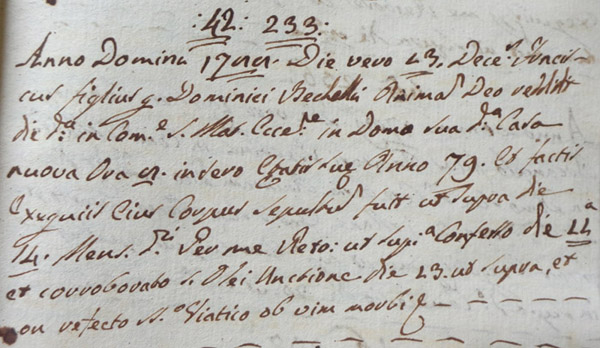 :42: 233:
Anno Domini 17 Die vero 23. Dece.s Ancis-
cus figlius q. Dominici Bechelli Anima Deo reddit
die d.a in Com.e S. Mat. Ecce.e in Domo sua d.a Casa
nuova Ora in sero Etatis sue Anno 79. Et factis
Exequiis Eius Corpus sepultus fuit ut supra die
14. Mens. d.i Per me Reto: ut sup.a Confesso die
et corroborato S. Olei Unctione die 23. ut supra, et
on refecto SS.o Viatico ob vim morbi